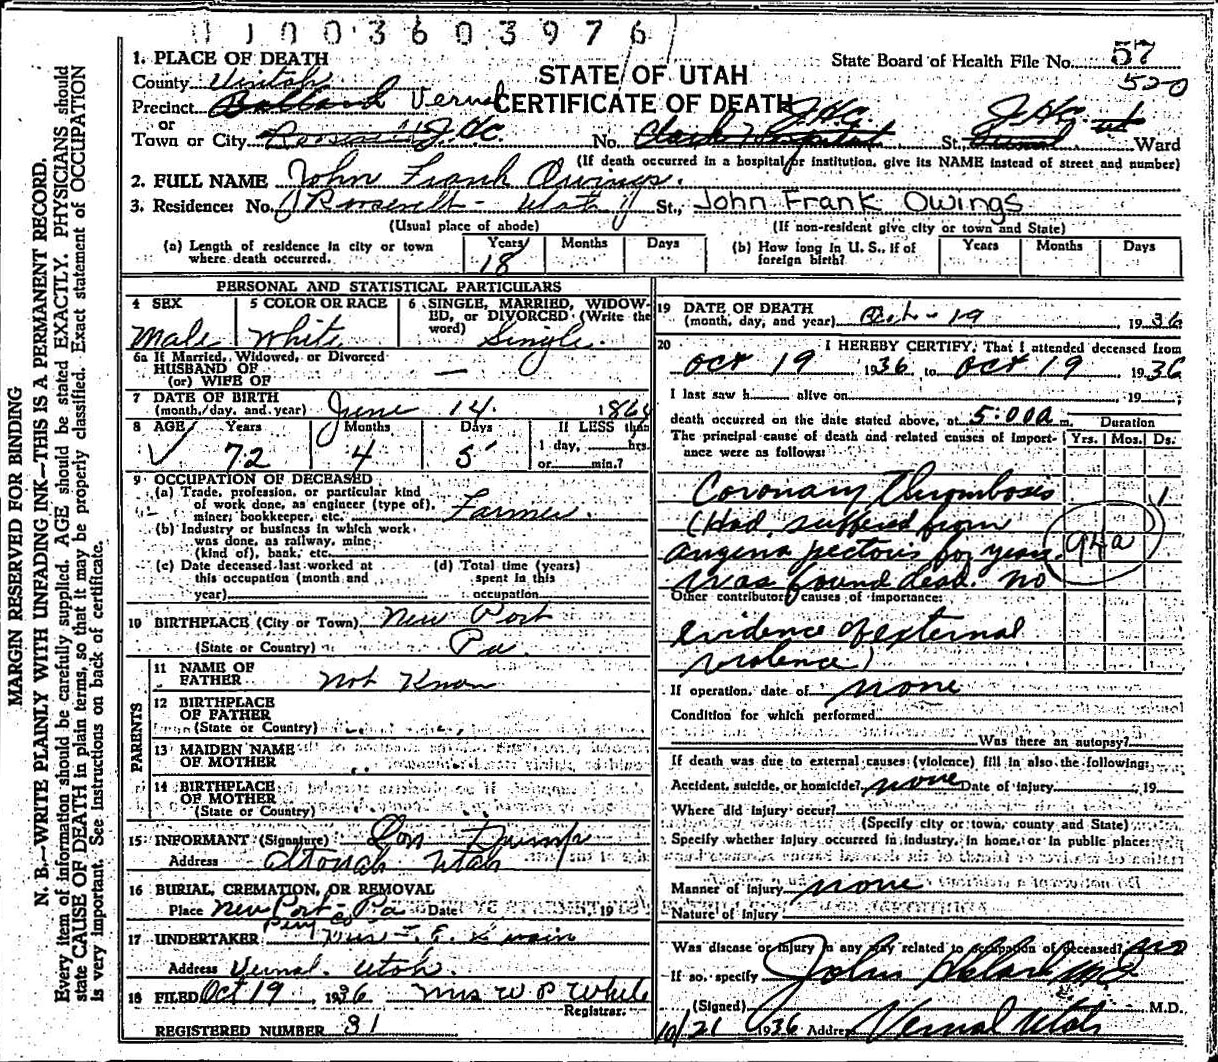 0 1 0 0 3 6 0 3 9 7 6
1. PLACE OF DEATH
State Board of Health File No. 57
County Uintah
STATE OF UTAH
520
Precinct Ballard Vernal
CERTIFICATE OF DEATH
or
Town or City J.H.C. No. Clark Hospital J.H.C. St., Vernal J.H.C. Ward
(If death occurred in a hospital or institution, give its NAME instead of street and number)
2. FULL NAME John Frank Owings.
3. Residence: No. Roosevelt - Utah St., John Frank Owings
(Usual place of abode) (If non-resident give city or town and State)
(a) Length of residence in city or town where death occurred. Years 18 Months Days
(b) How long in U. S., if of foreign birth? Years Months Days
PERSONAL AND STATISTICAL PARTICULARS
4 SEX Male
5 COLOR OR RACE White
6 SINGLE, MARRIED, WIDOWED, or DIVORCED (Write the word) Single
6a If Married, Widowed, or Divorced
HUSBAND OF —
(or) WIFE OF
7 DATE OF BIRTH
(month, day, and year) June 14 1864
8 AGE Years 72 Months 4 Days 5 If LESS than
1 day, hrs.
or min.?
9 OCCUPATION OF DECEASED
(a) Trade, profession, or particular kind
of work done, as engineer (type of),
miner, bookkeeper, etc. Farmer.
(b) Industry or business in which work
was done, as railway, mine
(kind of), bank, etc.
(c) Date deceased last worked at
this occupation (month and
year)
(d) Total time (years)
spent in this
occupation
10 BIRTHPLACE (City or Town) New Port
(State or Country) Pa.
PARENTS
11 NAME OF
FATHER Not Know
12 BIRTHPLACE
OF FATHER
(State or Country)
13 MAIDEN NAME
OF MOTHER
14 BIRTHPLACE
OF MOTHER
(State or Country)
15 INFORMANT (Signature)
Address Utah
16 BURIAL, CREMATION, OR REMOVAL
Place New Port - Pa Date 19
Perry Co
17 UNDERTAKER
Address Vernal. Utah.
18 FILED Oct 19 1936 Mrs W P White
Registrar.
REGISTERED NUMBER 31
19 DATE OF DEATH
(month, day, and year) Oct - 19 1936
20 I HEREBY CERTIFY, That I attended deceased from
Oct 19 1936 to Oct 19 1936
I last saw h alive on 19 ;
death occurred on the date stated above, at 5:00a m. Duration
The principal cause of death and related causes of importance were as follows: Yrs. Mos. Ds.
Coronary Thrombosis 1
(Had suffered from 94a
angina pectoris for years.
Was found dead. no
Other contributory causes of importance:
evidence of external
violence)
If operation, date of none
Condition for which performed
Was there an autopsy?
If death was due to external causes (violence) fill in also the following:
Accident, suicide, or homicide? none Date of injury 19
Where did injury occur?
(Specify city or town, county and State)
Specify whether injury occurred in industry, in home, or in public place:
Manner of injury none
Nature of injury
Was disease or injury in any way related to occupation of deceased? no
If so, specify
(Signed) John Clark MD M.D.
10/21 1936 Address Vernal Utah
MARGIN RESERVED FOR BINDING
N. B.—WRITE PLAINLY WITH UNFADING INK—THIS IS A PERMANENT RECORD.
Every item of information should be carefully supplied. AGE should be stated EXACTLY. PHYSICIANS should
state CAUSE OF DEATH in plain terms, so that it may be properly classified. Exact statement of OCCUPATION
is very important. See instructions on back of certificate.